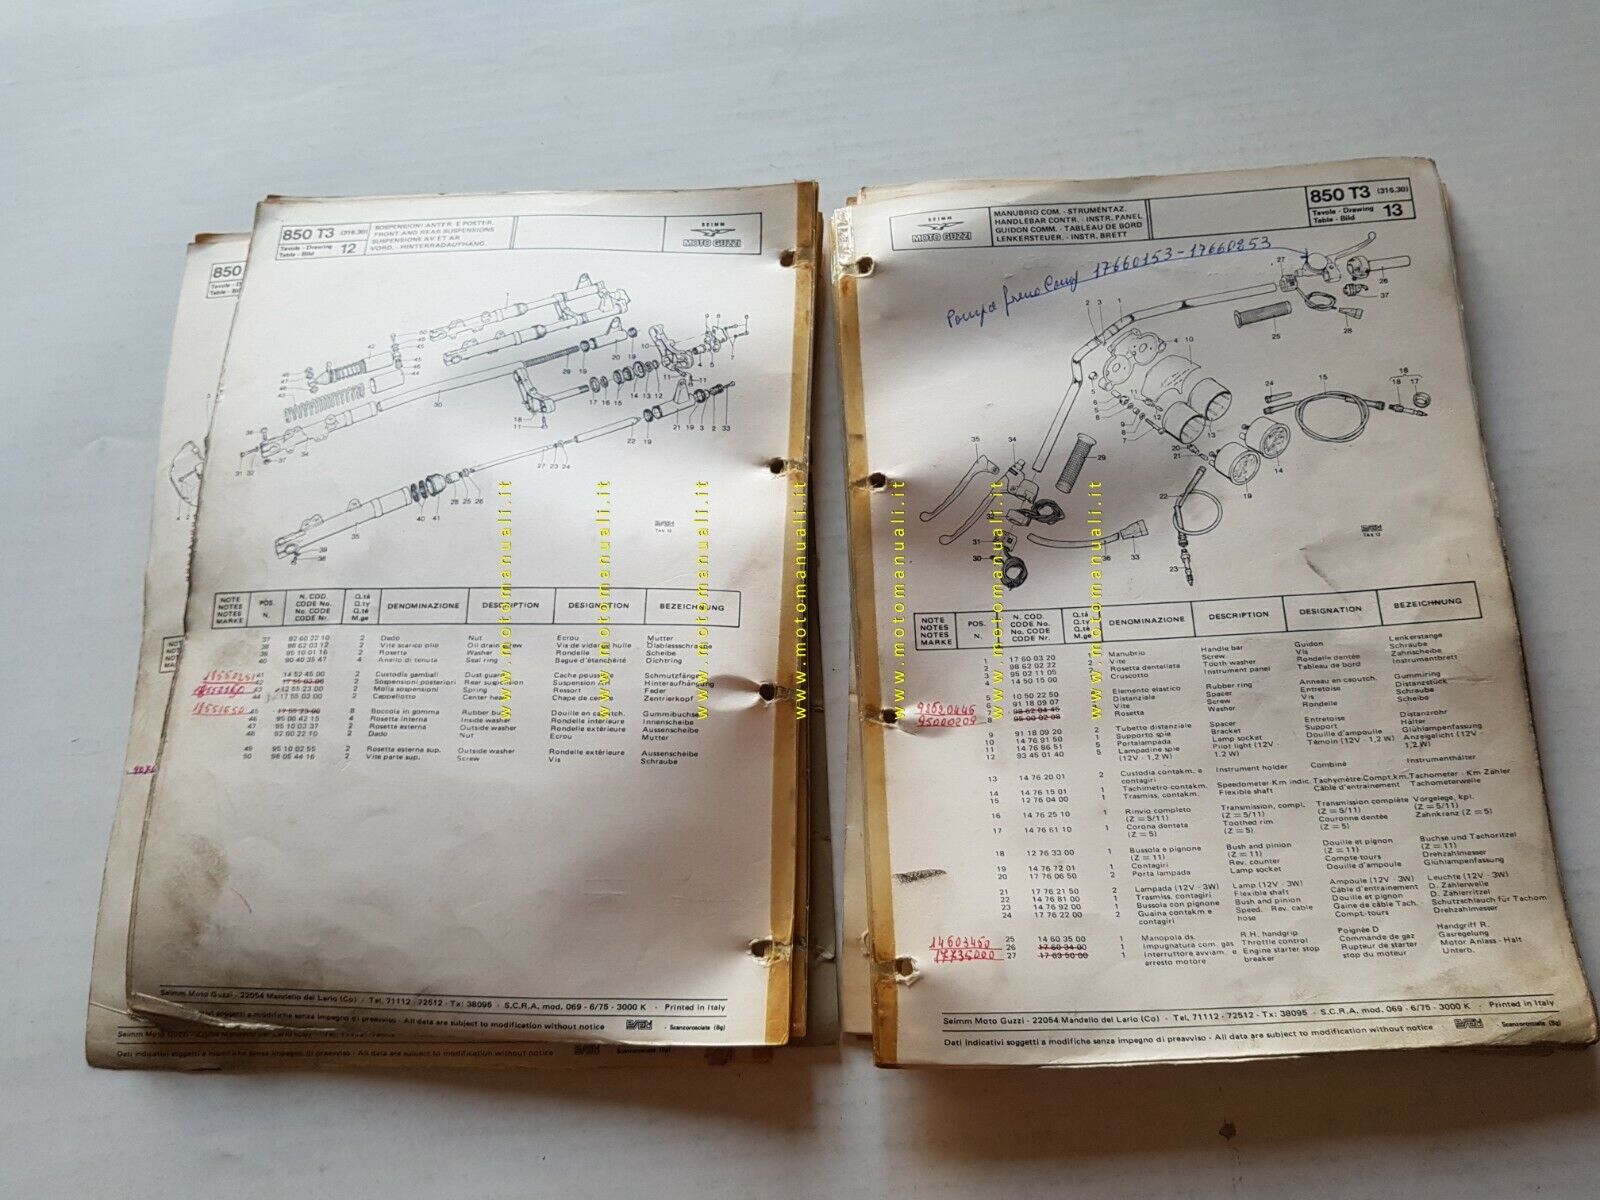 850 T3 (316.30)
Tavola - Drawing
Table - Bild 12
SOSPENSIONI ANTER. E POSTER.
FRONT AND REAR SUSPENSIONS
SUSPENSIONS AV ET AR
VORD. - HINTERRADAUFHÄNG.
SEIMM
MOTO GUZZI
NOTE NOTES NOTES MARKE
POS. N.
N. COD. CODE No. No. CODE CODE Nr.
Q.tà Q.ty Q.té M.ge
DENOMINAZIONE DESCRIPTION DESIGNATION BEZEICHNUNG
37 92 60 22 10 2 Dado Nut Ecrou Mutter
38 98 62 03 12 2 Vite scarico olio Oil drain screw Vis de vidange huile Ölablasschraube
39 95 10 01 16 2 Rosetta Washer Rondelle Scheibe
40 90 40 35 47 4 Anello di tenuta Seal ring Bague d'étanchéité Dichtring
41 14 52 45 00 2 Custodia gambali Dust guard Cache poussière Schmutzfänger
42 2 Sospensioni posteriori Rear suspension Suspension AR Hinteraufhängung
43 12 55 23 00 2 Molla sospensioni Spring Ressort Feder
44 17 55 03 00 2 Cappellotto Center head Chape de centrage Zentrierkopf
18551650 45 17 55 23 00 8 Boccola in gomma Rubber bush Douille en caoutch. Gummibuchse
46 95 00 42 15 4 Rosetta interna Inside washer Rondelle intérieure Innenscheibe
47 95 10 03 37 4 Rosetta esterna Outside washer Rondelle extérieure Aussenscheibe
48 92 60 22 10 2 Dado Nut Ecrou Mutter
49 95 10 02 55 2 Rosetta esterna sup. Outside washer Rondelle extérieure Aussenscheibe
50 98 05 44 16 2 Vite parte sup. Screw Vis Schraube
Seimm Moto Guzzi - 22054 Mandello del Lario (Co) / Tel. 71112 - 72512 - Tx: 38095 - S.C.R.A. mod. 069 - 6/75 - 3000 K - Printed in Italy
Dati indicativi soggetti a modifiche senza impegno di preavviso - All data are subject to modification without notice
Scanzorosciate (Bg)
SEIMM
MOTO GUZZI
MANUBRIO COM. - STRUMENTAZ.
HANDLEBAR CONTR. - INSTR. PANEL
GUIDON COMM. - TABLEAU DE BORD
LENKERSTEUER. - INSTR. BRETT
850 T3 (316.30)
Tavola - Drawing
Table - Bild 13
Pompa freno Comp 17660153 - 17660253
NOTE NOTES NOTES MARKE
POS. N.
N. COD. CODE No. No. CODE CODE Nr.
Q.tà Q.ty Q.té M.ge
DENOMINAZIONE DESCRIPTION DESIGNATION BEZEICHNUNG
1 17 60 03 20 1 Manubrio Handle bar Guidon Lenkerstange
2 98 62 02 22 Vite Screw Vis Schraube
3 95 02 11 05 Rosetta dentellata Tooth washer Rondelle dentée Zahnscheibe
4 14 50 15 00 Cruscotto Instrument panel Tableau de bord Instrumentbrett
5 10 50 22 50 2 Elemento elastico Rubber ring Anneau en caoutch. Gummiring
6 91 18 09 07 2 Distanziale Spacer Entretoise Distanzstück
98620446 7 98 62 04 45 2 Vite Screw Vis Schraube
95000209 8 95 00 02 08 2 Rosetta Washer Rondelle Scheibe
9 91 18 09 20 2 Tubetto distanziale Spacer Entretoise Distanzrohr
10 14 76 91 50 1 Supporto spie Bracket Support Hälter
11 14 76 86 51 5 Portalampada Lamp socket Douille d'ampoule Glühlampenfassung
12 93 45 01 40 5 Lampadine spie (12V - 1,2 W) Pilot light (12V - 1,2 W) Témoin (12V - 1,2 W) Anzeigelicht (12V - 1,2 W)
13 14 76 20 01 2 Custodia contakm. e contagiri Instrument holder Combiné Instrumenthälter
14 14 76 15 01 1 Tachimetro contakm. Speedometer Km indic. Tachymètre Compt.km. Tachometer - Km Zähler
15 12 76 04 00 1 Trasmiss. contakm. Flexible shaft Câble d'entrainement Tachometerwelle
16 14 76 25 10 1 Rinvio completo (Z = 5/11) Transmission, compl. (Z = 5/11) Transmission complète (Z = 5/11) Vorgelege, kpl. (Z = 5/11)
17 14 76 61 10 1 Corona dentata (Z = 5) Toothed rim (Z = 5) Couronne dentée (Z = 5) Zahnkranz (Z = 5)
18 12 76 33 00 1 Bussola e pignone (Z = 11) Bush and pinion (Z = 11) Douille et pignon (Z = 11) Buchse und Tachoritzel (Z = 11)
19 14 76 72 01 1 Contagiri Rev. counter Compte-tours Drehzahlmesser
20 17 76 06 50 2 Porta lampada Lamp socket Douille d'ampoule Glühlampenfassung
21 17 76 21 50 2 Lampada (12V - 3W) Lamp (12V - 3W) Ampoule (12V - 3W) Leuchte (12V - 3W)
22 14 76 81 00 1 Trasmiss. contagiri Flexible shaft Câble d'entrainement D. Zählerwelle
23 14 76 92 00 1 Bussola con pignone Bush and pinion Douille et pignon D. Zählerritzel
24 17 76 22 00 2 Guaina contakm e contagiri Speed. Rev. cable hose Gaine de câble Tach. Compt.-tours Schutzschlauch für Tachom Drehzahlmesser
25 14 60 35 00 1 Manopola ds. R.H. handgrip Poignée D Handgriff R.
14603450 26 17 60 34 00 1 Impugnatura com. gas Throttle control Commande de gaz Gasregelung
17735000 27 17 63 50 00 1 Interruttore avviam. e arresto motore Engine starter stop breaker Rupteur de starter stop du moteur Motor Anlass - Halt Unterb.
Seimm Moto Guzzi - 22054 Mandello del Lario (Co) - Tel. 71112 - 72512 - Tx: 38095 - S.C.R.A. mod. 069 - 6/75 - 3000 K - Printed in Italy
Dati indicativi soggetti a modifiche senza impegno di preavviso - All data are subject to modification without notice
Scanzorosciate (Bg)
www.motomanuali.it
www.motomanuali.it
www.motomanuali.it
www.motomanuali.it
www.motomanuali.it
www.motomanuali.it